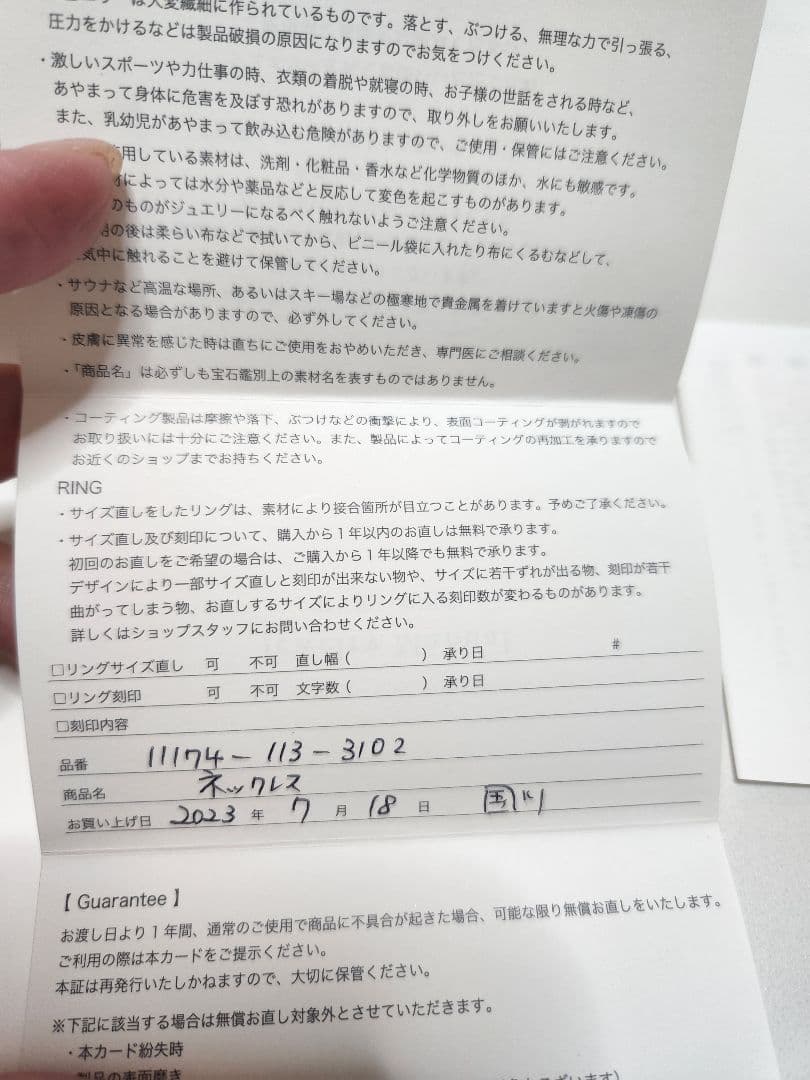 は大変繊細に作られているものです。落とす、ぶつける、無理な力で引っ張る、
圧力をかけるなどは製品破損の原因になりますのでお気をつけください。
・激しいスポーツや力仕事の時、衣類の着脱や就寝の時、お子様の世話をされる時など、
あやまって身体に危害を及ぼす恐れがありますので、取り外しをお願いいたします。
また、乳幼児があやまって飲み込む危険がありますので、ご使用・保管にはご注意ください。
用している素材は、洗剤・化粧品・香水など化学物質のほか、水にも敏感です。
によっては水分や薬品などと反応して変色を起こすものがあります。
のものがジュエリーになるべく触れないようご注意ください。
の後は柔らい布などで拭いてから、ビニール袋に入れたり布にくるむなどして、
気中に触れることを避けて保管してください。
・サウナなど高温な場所、あるいはスキー場などの極寒地で貴金属を着けていますと火傷や凍傷の
原因となる場合がありますので、必ず外してください。
・皮膚に異常を感じた時は直ちにご使用をおやめいただき、専門医にご相談ください。
・「商品名」は必ずしも宝石鑑別上の素材名を表すものではありません。
・コーティング製品は摩擦や落下、ぶつけなどの衝撃により、表面コーティングが剥がれますので
お取り扱いには十分にご注意ください。また、製品によってコーティングの再加工を承りますので
お近くのショップまでお持ちください。
RING
・サイズ直しをしたリングは、素材により接合箇所が目立つことがあります。予めご了承ください。
・サイズ直し及び刻印について、購入から1年以内のお直しは無料で承ります。
初回のお直しをご希望の場合は、ご購入から1年以降でも無料で承ります。
デザインにより一部サイズ直しと刻印が出来ない物や、サイズに若干ずれが出る物、刻印が若干
曲がってしまう物、お直しするサイズによりリングに入る刻印数が変わるものがあります。
詳しくはショップスタッフにお問い合わせください。
□リングサイズ直し 可 不可 直し幅( ) 承り日 #
□リング刻印 可 不可 文字数( ) 承り日
□刻印内容
品番 11174-113-3102
商品名 ネックレス
お買い上げ日 2023 年 7 月 18 日
【 Guarantee 】
お渡し日より1年間、通常のご使用で商品に不具合が起きた場合、可能な限り無償お直しをいたします。
ご利用の際は本カードをご提示ください。
本証は再発行いたしかねますので、大切に保管ください。
※下記に該当する場合は無償お直し対象外とさせていただきます。
・本カード紛失時
製品の表面磨き